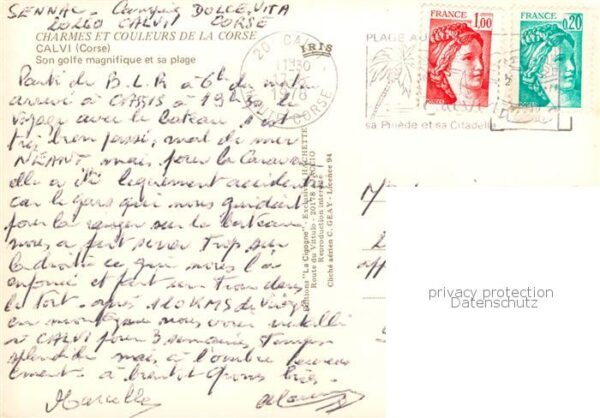 SENNAC - Camping DOLCE VITA
20260 CALVI CORSE
CHARMES ET COULEURS DE LA CORSE
CALVI (Corse)
Son golfe magnifique et sa plage
Parti de B.L.R à 6h du matin
arrivé à CASSIS à 19h30, le
voyage avec le bateau s'est
très bien passé, mal de mer
NÉANT mais, pour la Caravane
elle a été légèrement accidentée
car le gars qui nous guidait
pour la ranger sur le bateau
nous a fait serrer trop sur
la droite ce qui nous l'a
enfoncé et fait un trou dans
le toit - après 120 KMS de
en montagne nous voici installé
à CALVI pour 3 semaines, temps
splendide mais, à l'ombre
à bientôt Gros bises
Marcelle
IRIS
20 CALVI
HTE CORSE
PLAGE
sa Pinède et sa Citadelle
FRANCE
1,00
POSTES
FRANCE
0,20
POSTES
Editions "La Cigogne" - Exclusivité HACHETTE
Route du Vittulo - 20178 AJACCIO
Reproduction interdite
Cliché aérien C. GEAY - Licence 94
privacy protection
Datenschutz